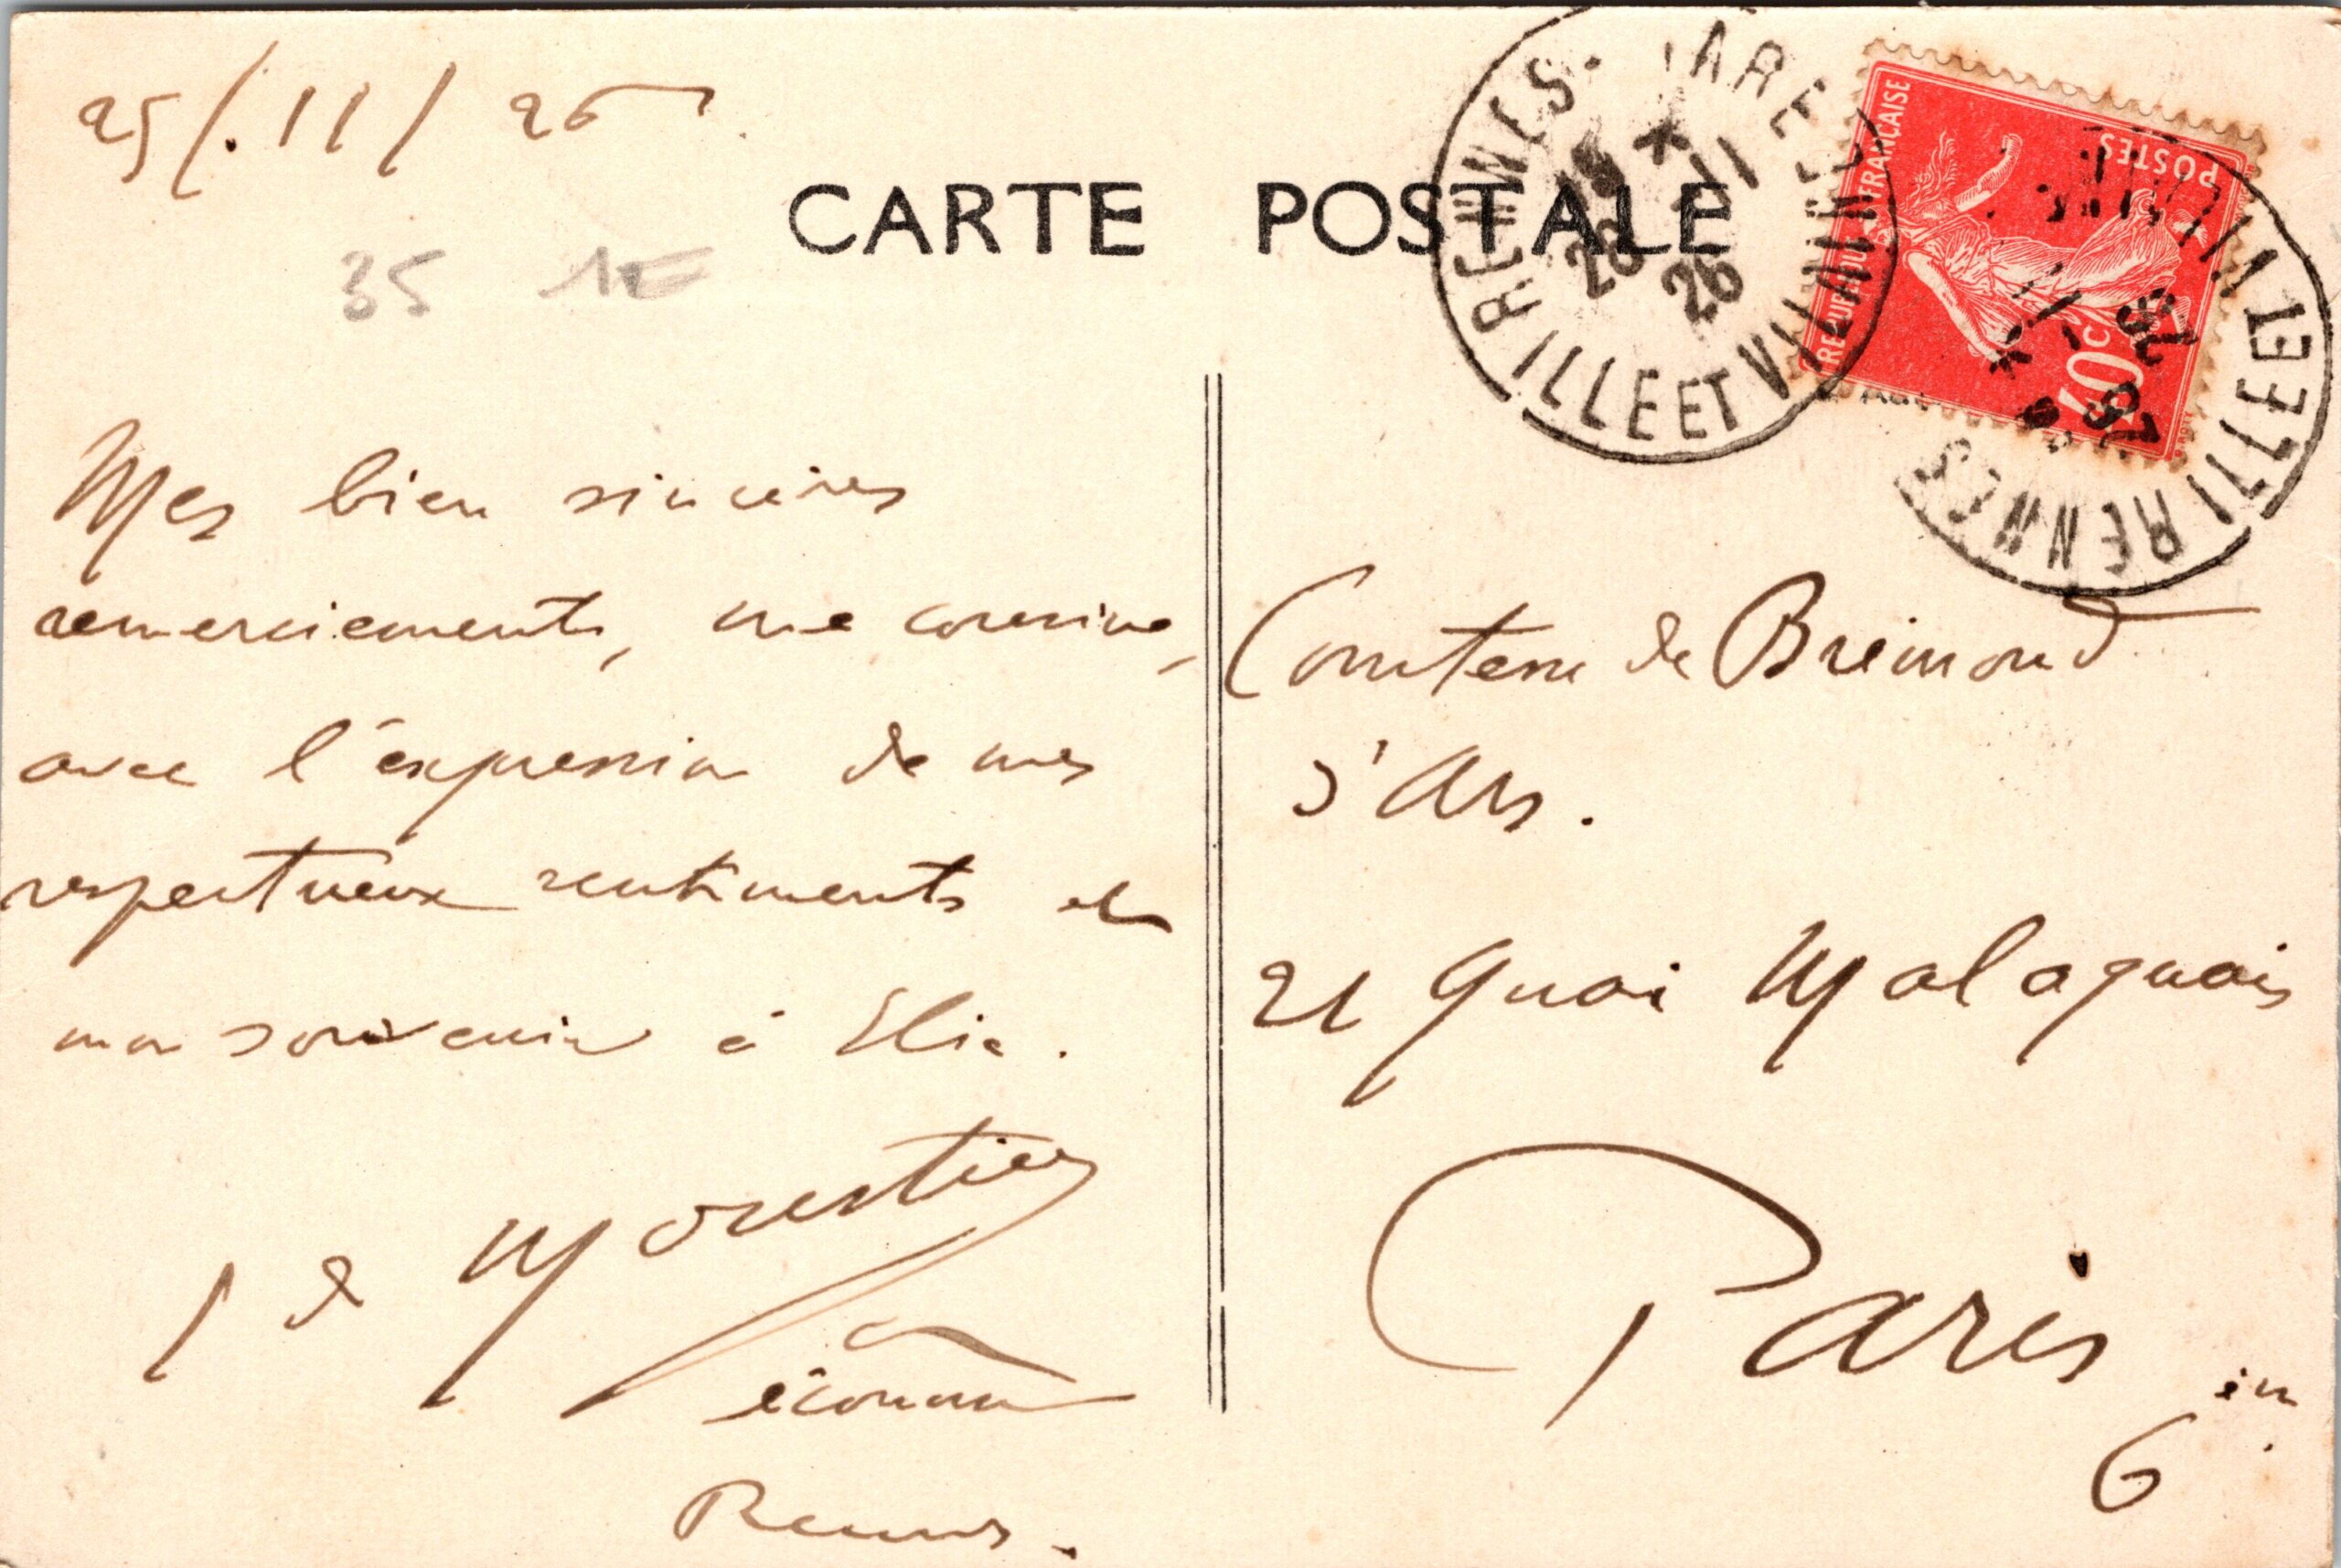 25/.11/26
CARTE POSTALE
35 1E
RENNES-GARE
ILLE ET VILAINE
28
11
26
REPUBLIQUE FRANÇAISE
POSTES
40c
RENNES
ILLE ET VILAINE
28
11
26
Mes bien sincères
remerciements, ma cousine,
avec l'expression de mes
respectueux sentiments et
mon souvenir à Elie.
de
Rennes.
Comtesse de Bremond
d'Ars.
21 Quai Malaquais
Paris
6